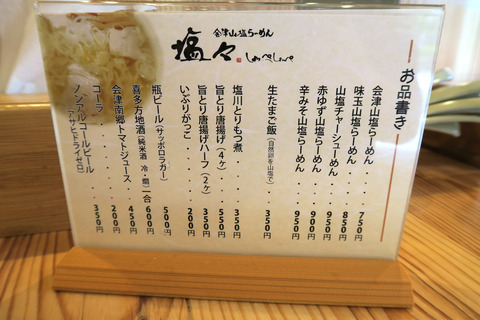 会津山塩らーめん
塩々
しおぺしぇぺ
お品書き
会津山塩らーめん・・・750円
味玉山塩らーめん・・・850円
山塩チャーシューめん・・・950円
赤ゆず山塩らーめん・・・900円
辛みそ山塩らーめん・・・950円
生たまご飯(自然卵を山塩で)・・・350円
塩川とりもつ煮・・・350円
旨とり唐揚げ(4ヶ)・・・550円
旨とり唐揚げハーフ(2ヶ)・・・350円
いぶりがっこ・・・200円
瓶ビール(サッポロラガー)・・・500円
喜多方地酒(純米酒 冷・燗)一合 600円
会津南郷トマトジュース・・・450円
コーラ・・・200円
ノンアルコールビール・・・350円
(アサヒドライゼロ)